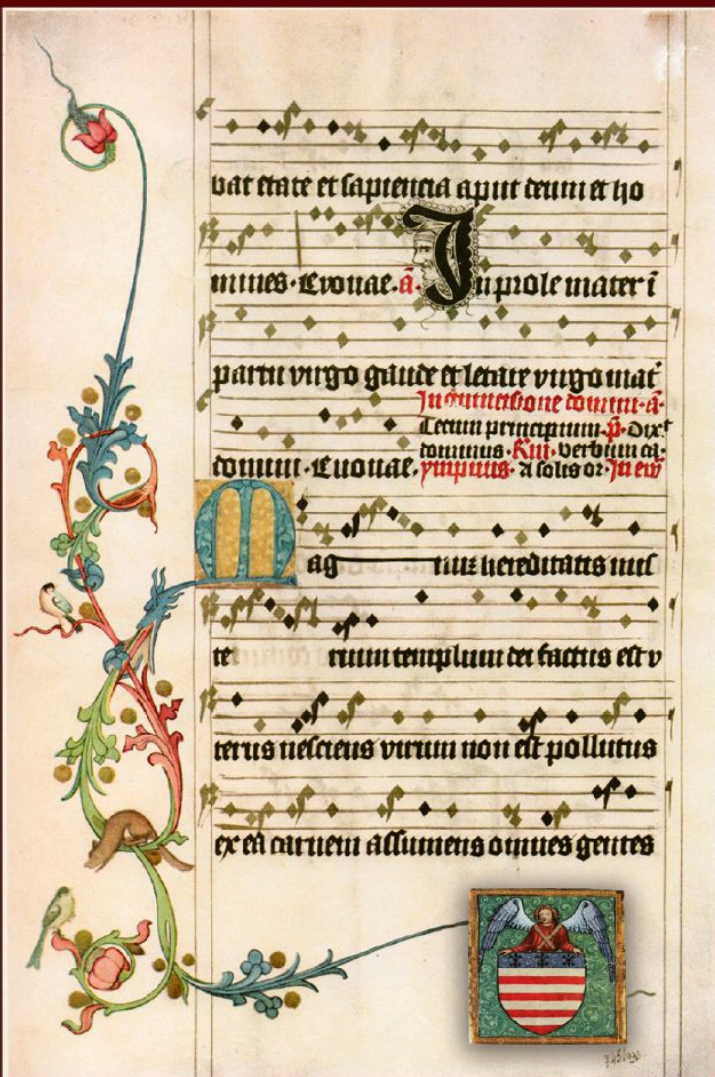 bat etate et sapiencia aput deum et ho
mines · Evovae · a᷃ · In prole mater i᷃
partu virgo gaude et letare virgo mat᷃
In circumcisione domini · a᷃ ·
Tecum principium · p᷃ · Dix᷃t
domini · Evovae ·
dominus · Rm᷃ · verbum ca ·
ympnus · A solis or · In ev᷃
Mag nu᷃ hereditatis mis
te rium templum dei factus est v
terus nesciens virum non est pollutus
ex ea carnem assumens omnes gentes